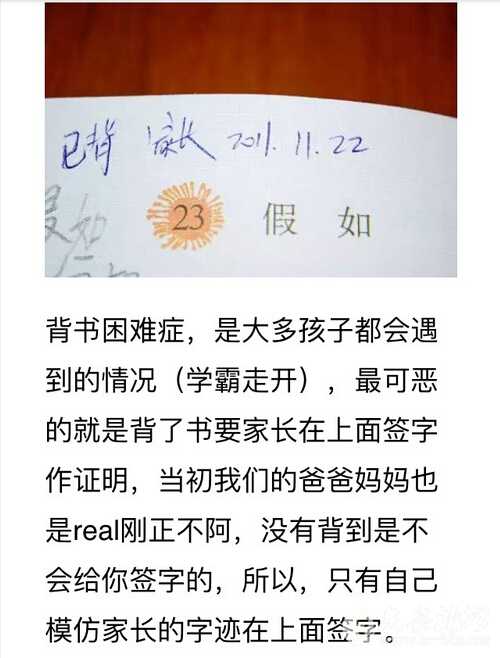 已背 家长 2011.11.22
23 假如
背书困难症，是大多孩子都会遇
到的情况（学霸走开），最可恶
的就是背了书要家长在上面签字
作证明，当初我们的爸爸妈妈也
是real刚正不阿，没有背到是不
会给你签字的，所以，只有自己
模仿家长的字迹在上面签字。